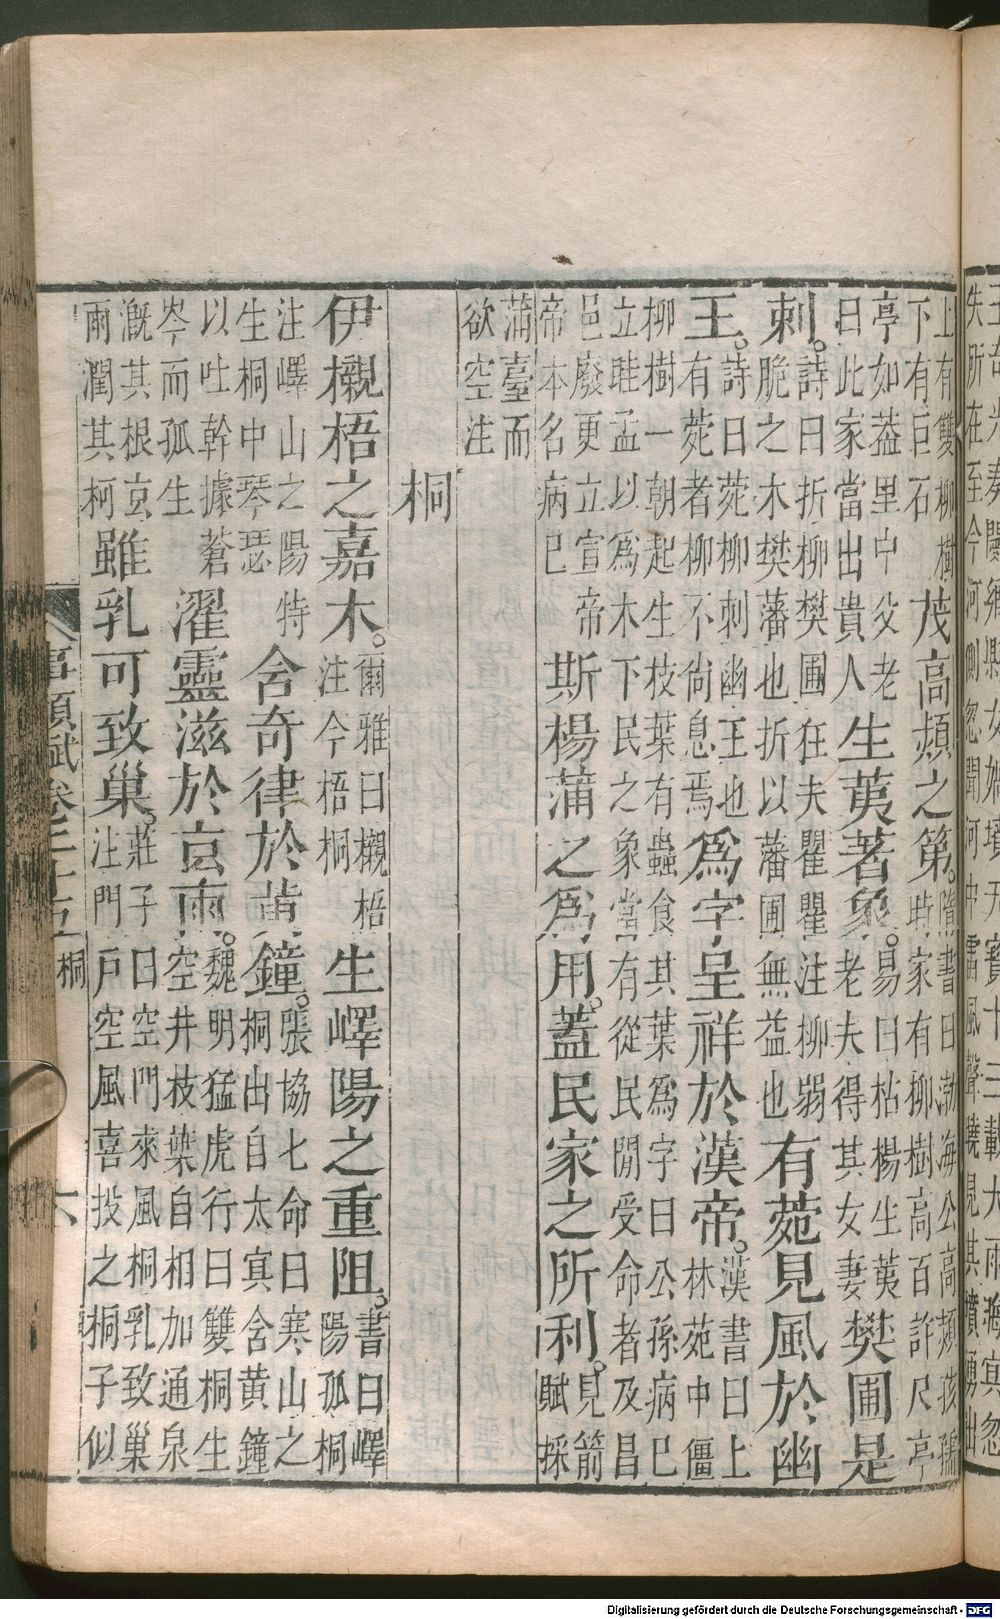 閿鄉縣女媧墳天寶十三載大雨晦冥忽
失所在至今河側忽聞河中雷風聲曉見其墳湧出
上有雙柳樹
下有巨石
茂高熲之第。
隋書曰渤海公高熲孩孺
時家有柳樹高百許尺亭
亭如葢里中父老
曰此家當出貴人
生荑著象。
易曰枯楊生荑
老夫得其女妻
樊圃是
刺。
詩曰折柳樊圃狂夫瞿瞿注柳弱
脆之木樊藩也折以藩圃無益也
有菀見風於幽
王。
詩曰菀柳刺幽王也
有菀者柳不尙息焉
為字呈祥於漢帝。
漢書曰上
林苑中僵
柳樹一朝起生枝葉有蟲食其葉為字曰公孫病巳
立眭孟以為木下民之象當有從民閒受命者及昌
邑廢更立宣帝
帝本名病巳
斯楊蒲之為用。蓋民家之所利。
見箭
賦採
蒲臺而
欲空注
桐
伊櫬梧之嘉木。
爾雅曰櫬梧
注今梧桐
生嶧陽之重阻。
書曰嶧
陽孤桐
注嶧山之陽特
生桐中琴瑟
含奇律於黃鐘。
張協七命曰寒山之
桐出自太冥含黃鐘
以吐幹據蒼
岑而孤生
濯靈滋於玄雨。
魏明猛虎行曰雙桐生
空井枝葉自相加通泉
溉其根玄
雨潤其柯
雖乳可致巢。
莊子曰空門來風桐乳致巢
注門戶空風喜投之桐子似
事類賦卷二十五
桐
六
Digitalisierung gefördert durch die Deutsche Forschungsgemeinschaft - DFG